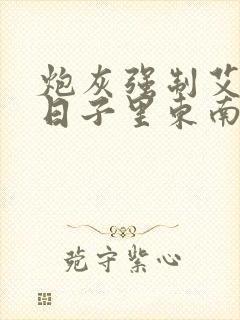 炮灰强制艾
日子里东南
菀守紫心